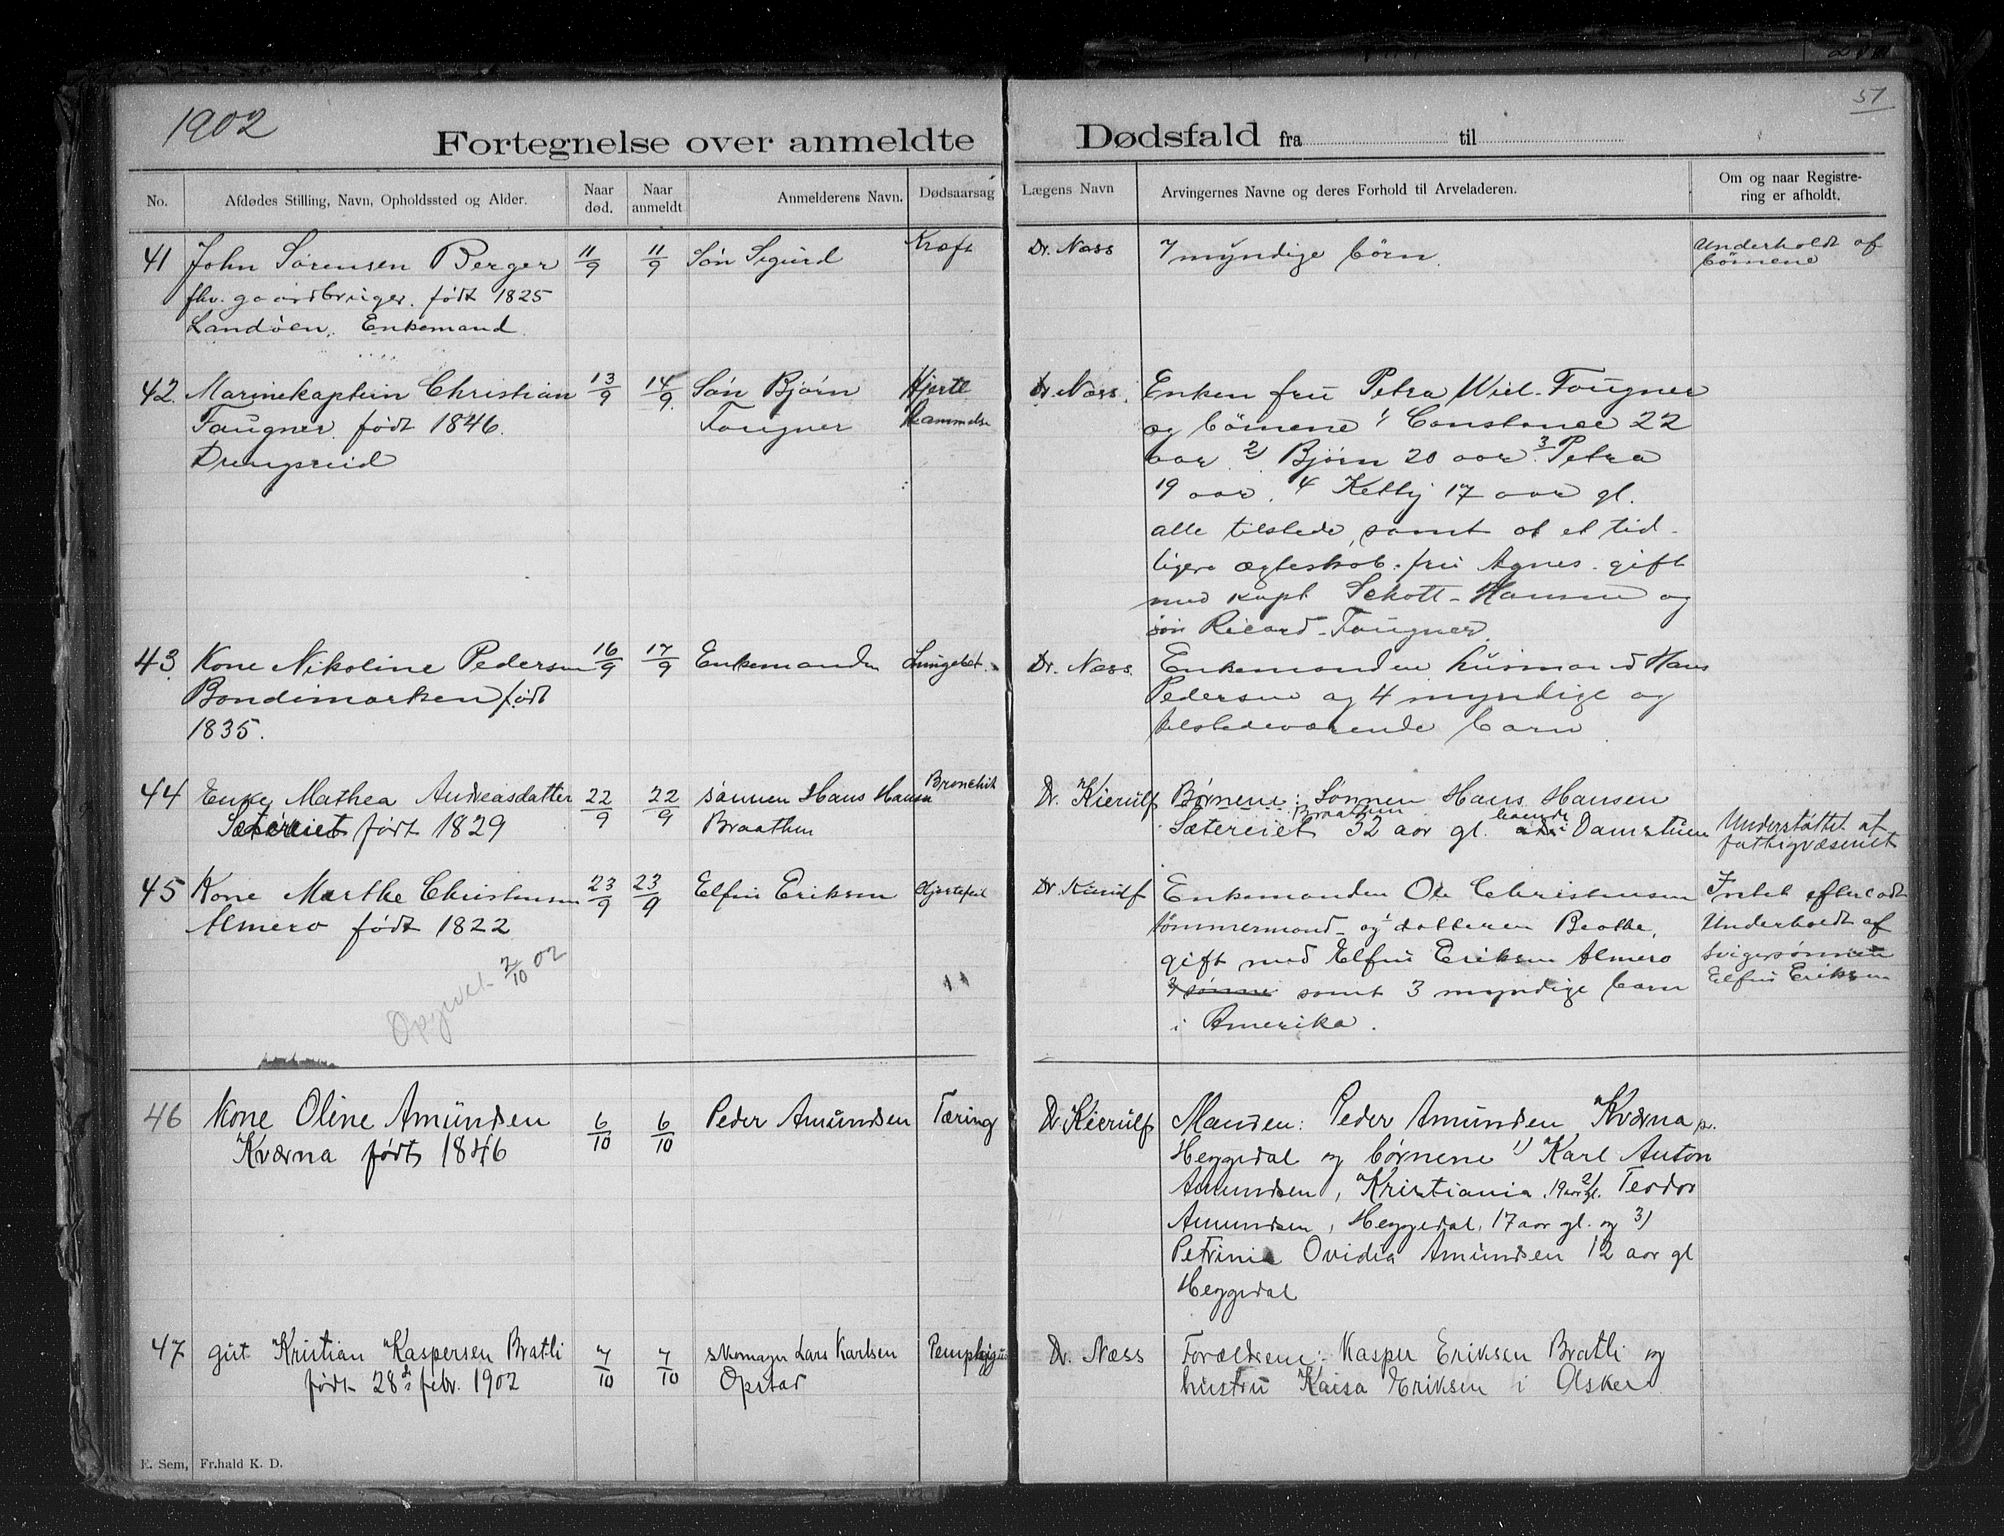 1902
51
Fortegnelse over anmeldte Dødsfald fra til
No.
Afdødes Stilling, Navn, Opholdssted og Alder.
Naar død.
Naar anmeldt
Anmelderens Navn.
Dødsaarsag
Lægens Navn
Arvingernes Navne og deres Forhold til Arveladeren.
Om og naar Registre-
ring er afholdt.
41 John Sørensen Berger 11/9 11/9 Søn Sigurd Kræft Dr. Næss 7 myndige børn. Underholdt af
fhv. gaardbruger. født 1825 børnene
Landøen. Enkemand.
42. Marinekaptein Christian 13/9 14/9 Søn Bjørn Hjerte Dr. Næss. Enken fru Petra Wiel-Fougner
Fougner født 1846. Fougner Lammelse og børnene 1/ Constance 22
aar 2/ Bjørn 20 aar 3 Petra
19 aar. 4 Ketty 17 aar gl.
alle tilstede, samt af et tid-
ligere ægteskab. fru Agnes. gift
med kapt Schott-Hansen og
søn Ricard Fougner.
43. Kone Nikoline Pedersen 16/9 17/9 Enkemanden Lungebet. Dr. Næss. Enkemanden husmand Hans
Bondimarken født Pedersen og 4 myndige og
1835. tilstedeværende børn.
44 Enke Mathea Andreasdatter 22/9 22/9 sønnen Hans Hansen Bronchit Dr. Kierulf Børnene: Sønnen Hans Hansen
Sætereiet født 1829 Braathen Braathen
Sætereiet 32 aar gl. boende Damstuen Understøttet af
fattigvæsenet
45 Kone Marthe Christensen 23/9 23/9 Elfin Eriksen Hjertefeil Dr Kierulf Enkemanden Ole Christensen Intet efterladt
Almero født 1822 tømmermand og datteren Beathe, Underholdt af
Opgivet 2/10 02 gift med Elfin Eriksen Almero svigersønnen
3 sønner samt 3 myndige børn Elfin Eriksen
i Amerika.
46 Kone Oline Amundsen 6/10 6/10 Peder Amundsen Tæring Dr Kierulf Manden: Peder Amundsen Kværna p.
Kværna født 1846 Heggedal og børnene 1) Karl Anton
Amundsen, Kristiania 19 aar gl. 2/ Teodor
Amundsen, Heggedal, 17 aar gl. og 3)
Petrine Ovidia Amundsen 12 aar gl
Heggedal
47 gut Kristian Kaspersen Bratli 7/10 7/10 skomager Lars Karlsen Pemphigus Dr. Næss Forældrene: Kasper Eriksen Bratli og
født 28de febr. 1902 Opstad hustru Kaisa Eriksen i Asker.
E. Sem, Fr.hald K. D.